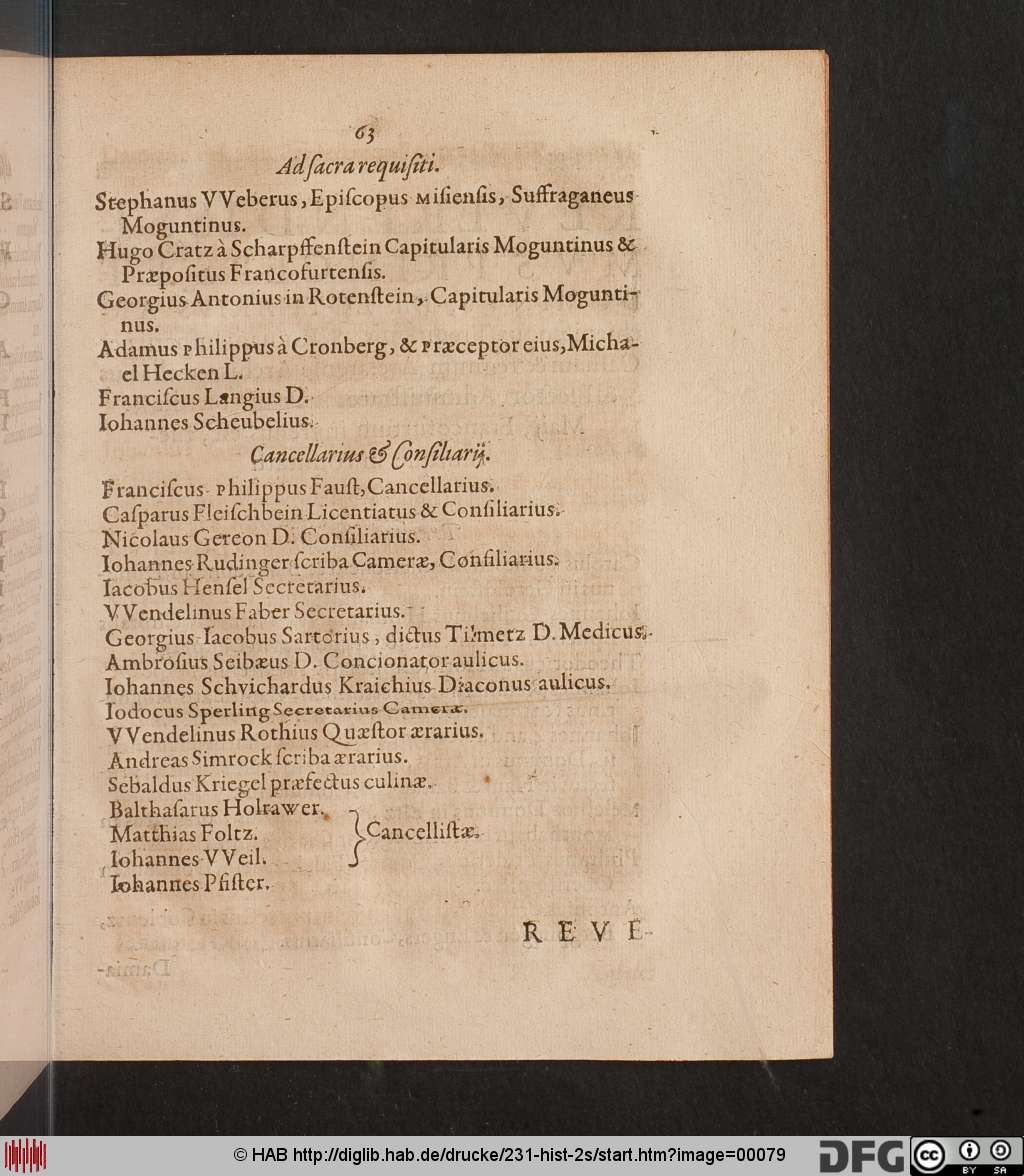 63
Ad ſacra requiſiti.
Stephanus VVeberus, Epiſcopus Miſienſis, Suffraganeus
Moguntinus.
Hugo Cratz à Scharpffenſtein Capitularis Moguntinus &
Præpoſitus Francofurtenſis.
Georgius Antonius in Rotenſtein, Capitularis Mogunti-
nus.
Adamus Philippus à Cronberg, & Præceptor eius, Micha-
el Hecken L.
Franciſcus Langius D.
Iohannes Scheubelius.
Cancellarius & Conſiliarij.
Franciſcus Philippus Fauſt, Cancellarius.
Caſparus Fleiſchbein Licentiatus & Conſiliarius.
Nicolaus Gereon D. Conſiliarius.
Iohannes Rudinger ſcriba Cameræ, Conſiliarius.
Iacobus Henſel Secretarius.
VVendelinus Faber Secretarius.
Georgius Iacobus Sartorius, dictus Tilmetz D. Medicus.
Ambroſius Seibæus D. Concionator aulicus.
Iohannes Schvichardus Kraichius Diaconus aulicus.
Iodocus Sperling Secretarius Cameræ.
VVendelinus Rothius Quæſtor ærarius.
Andreas Simrock ſcriba ærarius.
Sebaldus Kriegel præfectus culinæ.
Balthaſarus Holrawer.
Matthias Foltz. Cancelliſtæ.
Iohannes VVeil.
Iohannes Pfiſter.
REVE-
© HAB http://diglib.hab.de/drucke/231-hist-2s/start.htm?image=00079
DFG
cc
BY SA